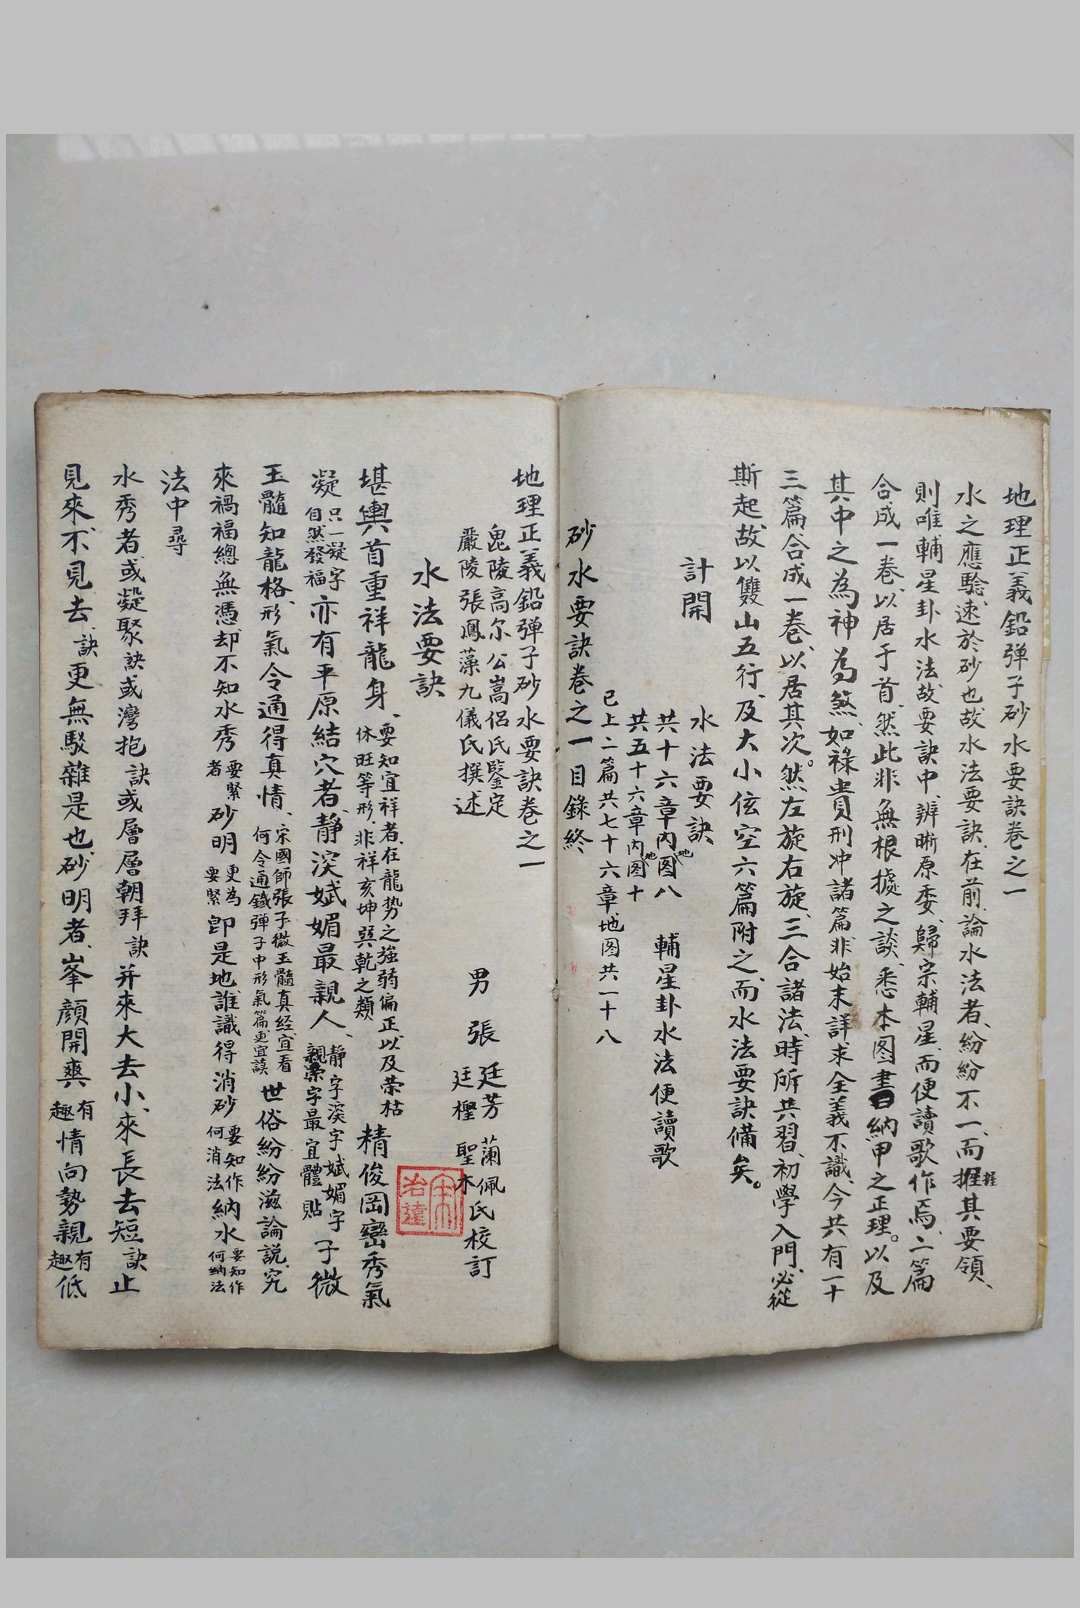 地理正義鉛弹子砂水要訣卷之一
水之應驗速於砂也故水法要訣在前論水法者紛紛不一而握其要領
則唯輔星卦水法故要訣中辨晰原委歸宗輔星而便讀歌作焉二篇
合成一卷以居于首然此非無根據之談悉本图書納甲之正理以及
其中之為神為煞如祿貴刑冲諸篇非始末詳求全義不識今共有一十
三篇合成一卷以居其次然左旋右旋三合諸法時所共習初學入門必從
斯起故以雙山五行及大小弦空六篇附之而水法要訣備矣
計開
水法要訣
共十六章内地图八 輔星卦水法便讀歌
共五十六章内地图十
已上二篇共七十六章地图共一十八
砂水要訣卷之一目錄終
地理正義鉛弹子砂水要訣卷之一
毘陵高尔公嵩侶氏鑒定
嚴陵張鳳藻九儀氏撰述
男 張 廷芳 蘭佩氏校訂
廷樫 聖木
水法要訣
堪輿首重祥龍身要知宜祥者在龍勢之強弱偏正以及荣枯休旺等形非祥亥坤巽乾之類精俊岡巒秀氣
凝只一凝字自然發福亦有平原結穴者靜深娬媚最親人靜字深字娬媚字親字最宜體貼子微
玉髓知龍格形氣令通得真情宋國師張子微玉髓真經宜看何令通鐵弹子中形氣篇更宜讀世俗紛紛滋論說究
來禍福總無憑却不知水秀要緊者砂明更為要緊即是地誰識得消砂要知作何消法納水要知作何納法
法中尋
水秀者或凝聚訣或灣抱訣或層層朝拜訣并來大去小來長去短訣止
見來不見去訣更無駁雜是也砂明者峯顔開爽有趣情向勢親有趣低
宋治達